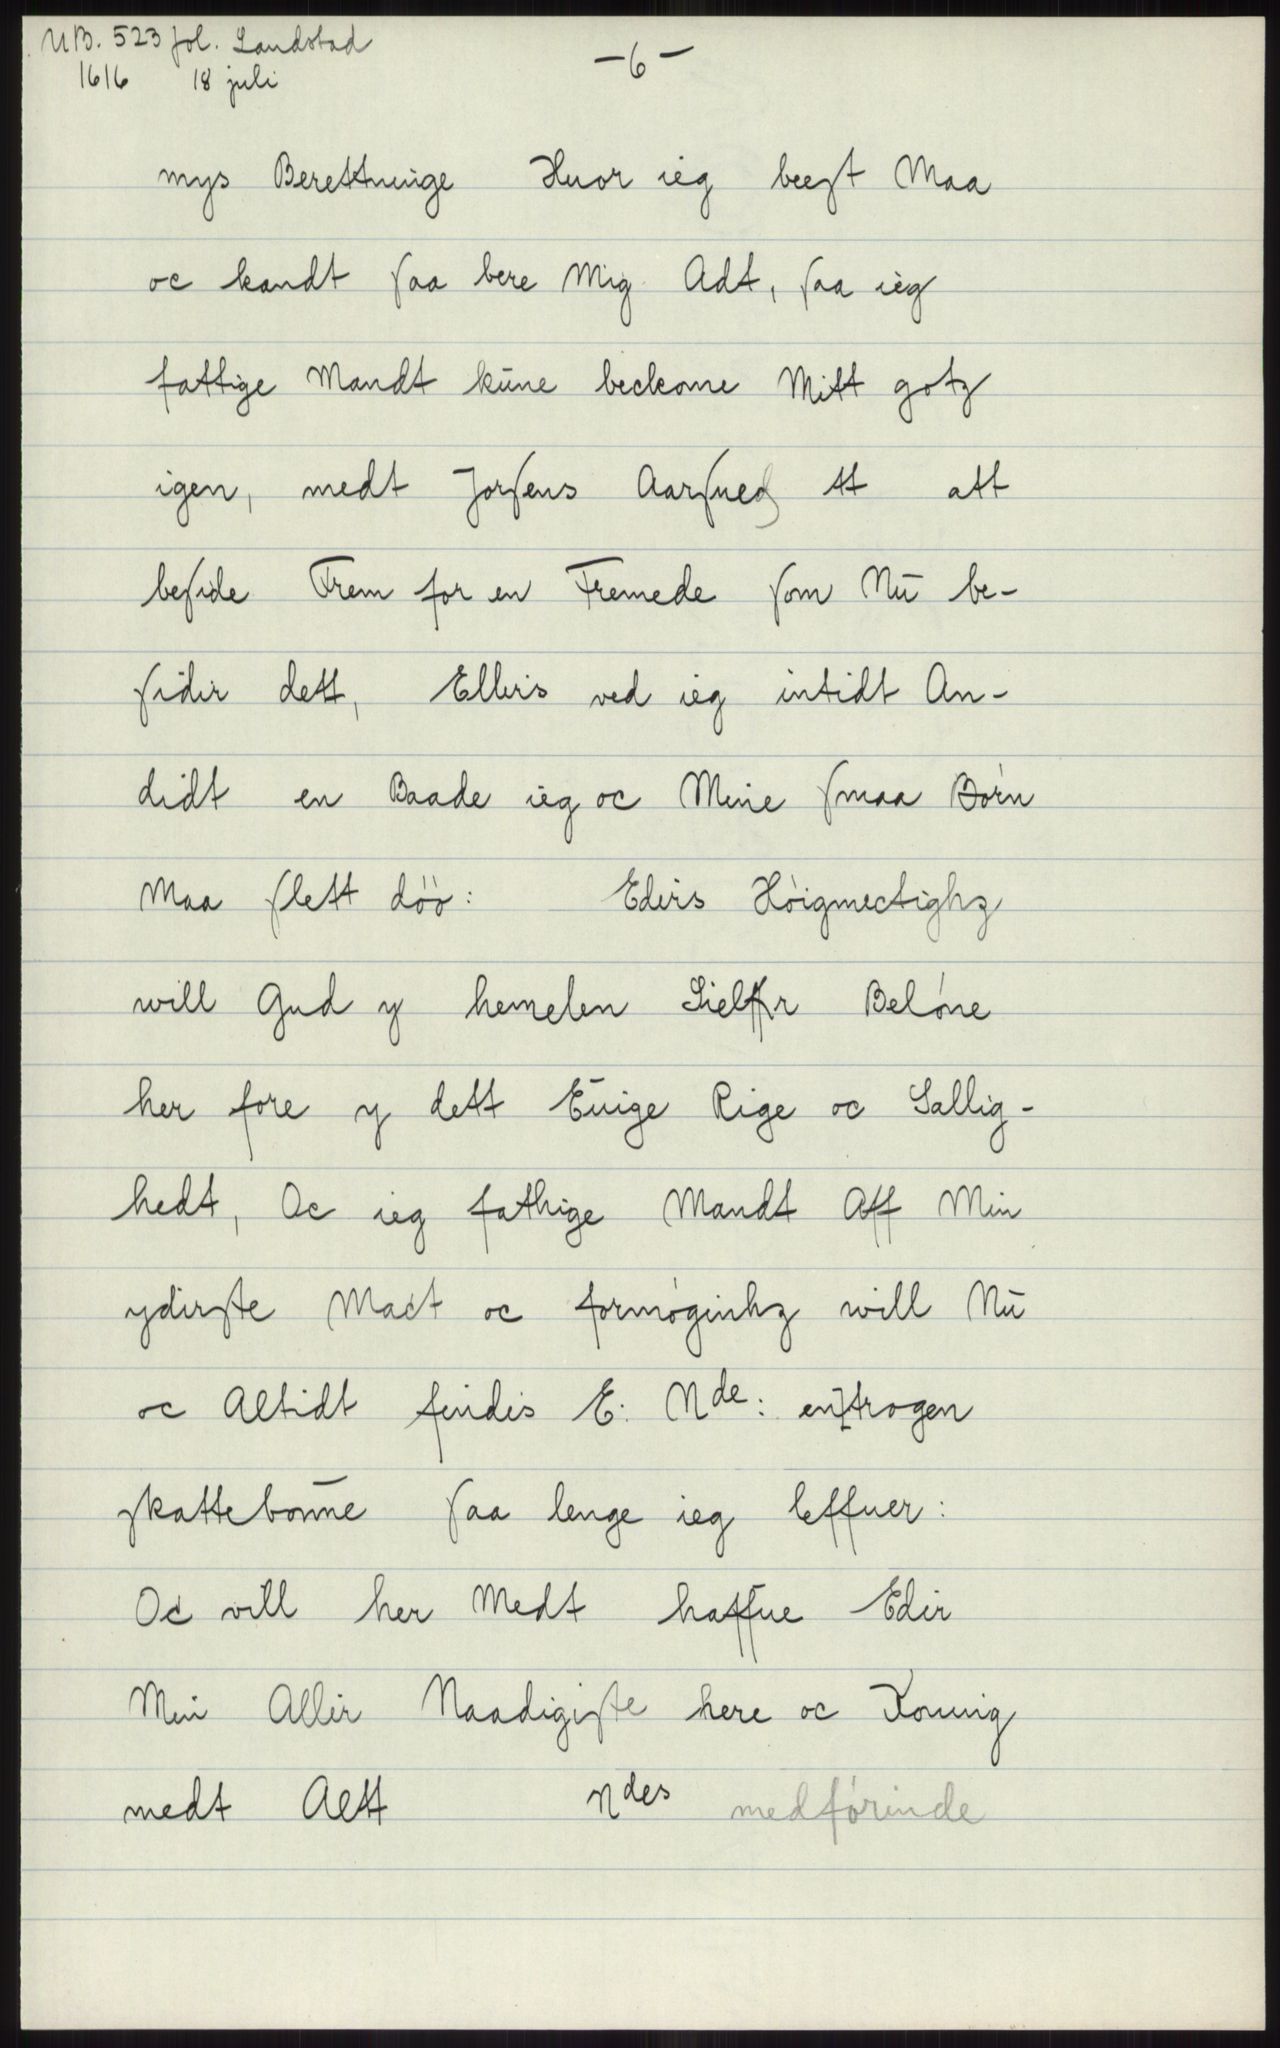 UB. 523 fol. Landstad
1616 18 juli
-6-
mys Berettninge Huor ieg beeſt Maa
oc kandt ſaa bere Mig Adt, ſaa ieg
fattige Mandt kūne beckome Mitt gotz
igen, medt Jorſens Aarſued tt att
beſide Frem for en Fremede ſom Nū be-
ſidir dett, Ellirs ved ieg intidt An-
didt en Baade ieg oc Mine ſmaa Børn
Maa ſlett døø: Edirs Høigmectighz
will Gud y hemelen Sielffr Beløne
her fore y dett Eūige Rige oc Sallig-
hedt, Oc ieg fathige Mandt Aff Min
ydirſte Mact oc formøginhz will Nū
oc Altidt findis E: Nde: en trogen
ſkattebonne ſaa lenge ieg leffuer:
Oc vill her Medt haffue Edir
Min Allir Naadigiſte here oc Koning
medt Altt Ndes medførinde